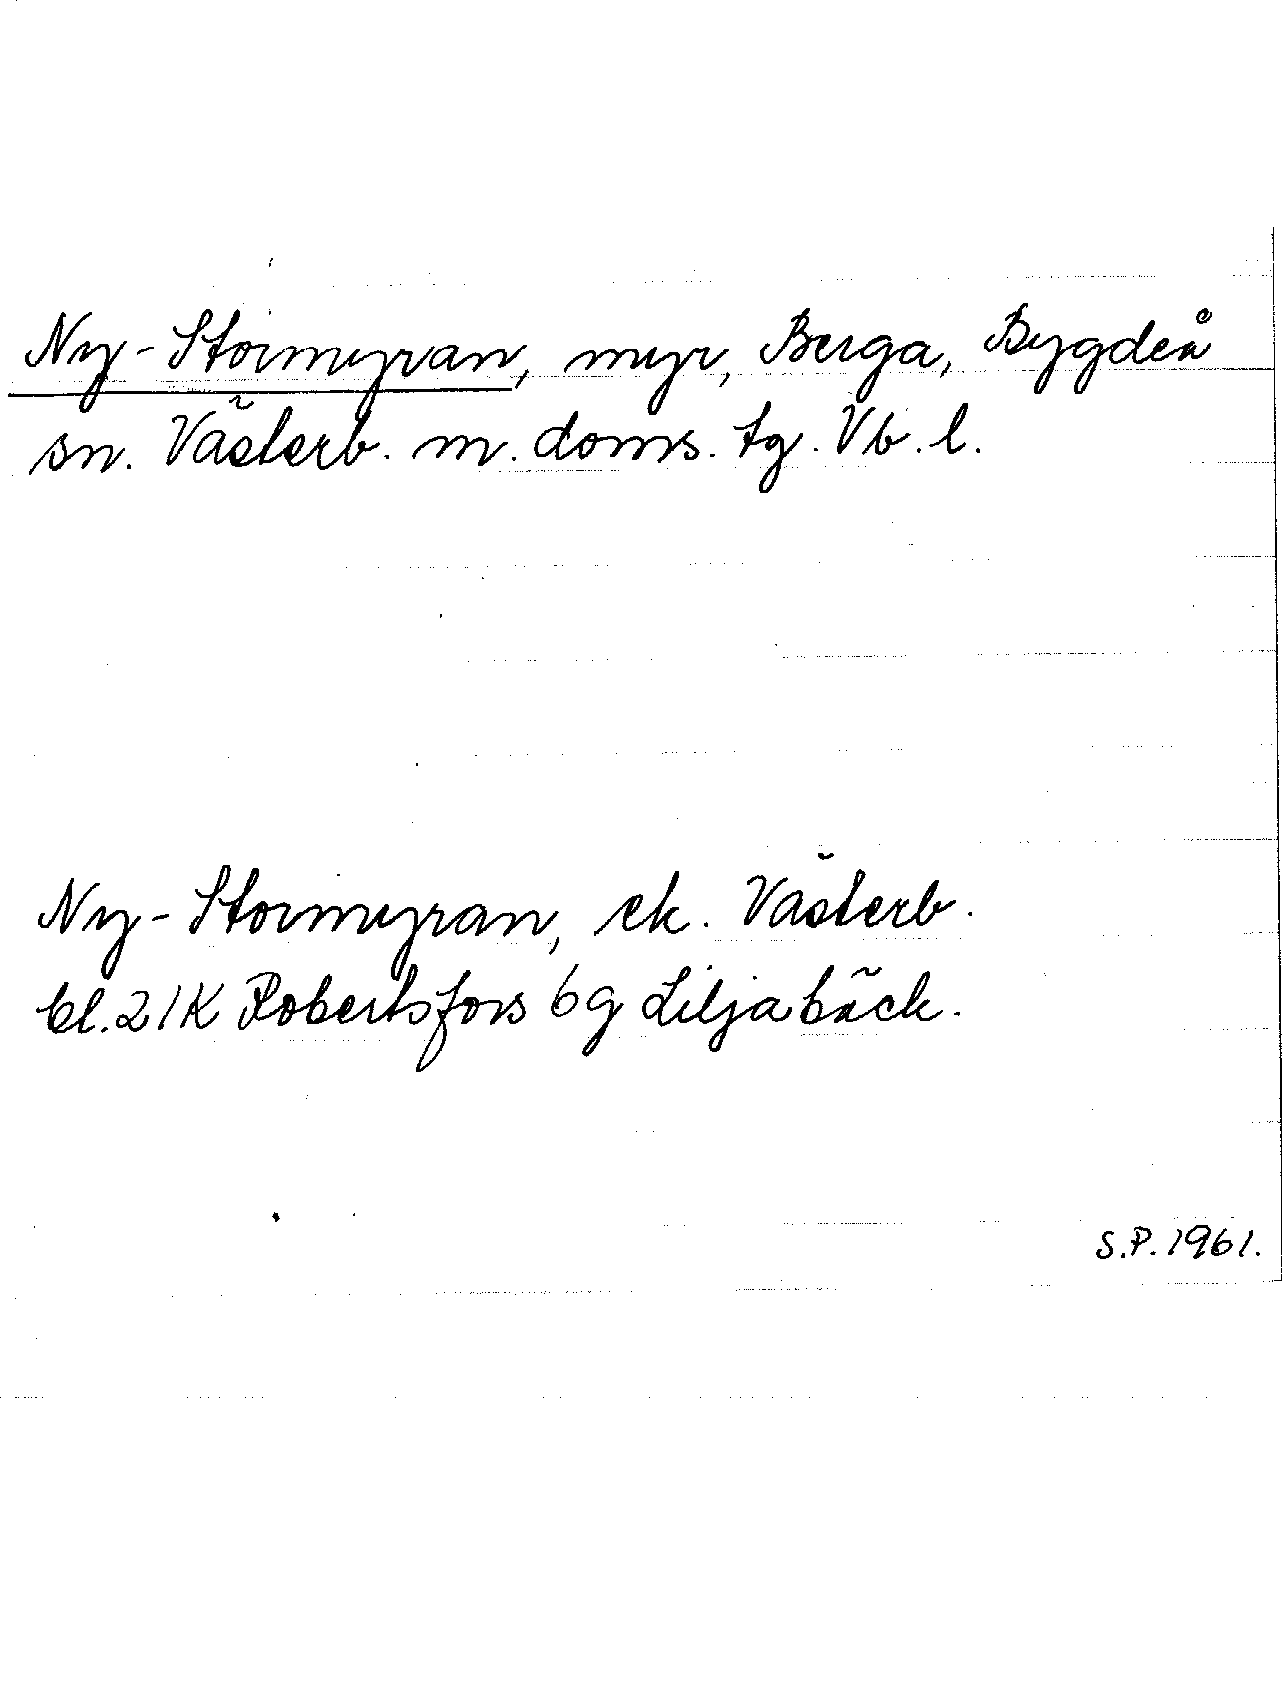 Ny-Stormyran, myr, Berga, Bygdeå
sn. Västerb. m. doms. tg. Vb. l.
Ny-Stormyran, ek. Västerb.
bl. 21K Robertsfors 6g Liljabäck.
S.P. 1961.